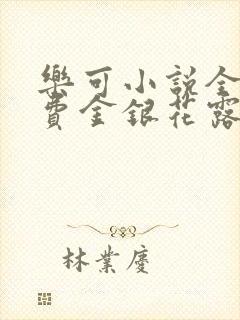 樂可小說全
費金銀花露
林業慶